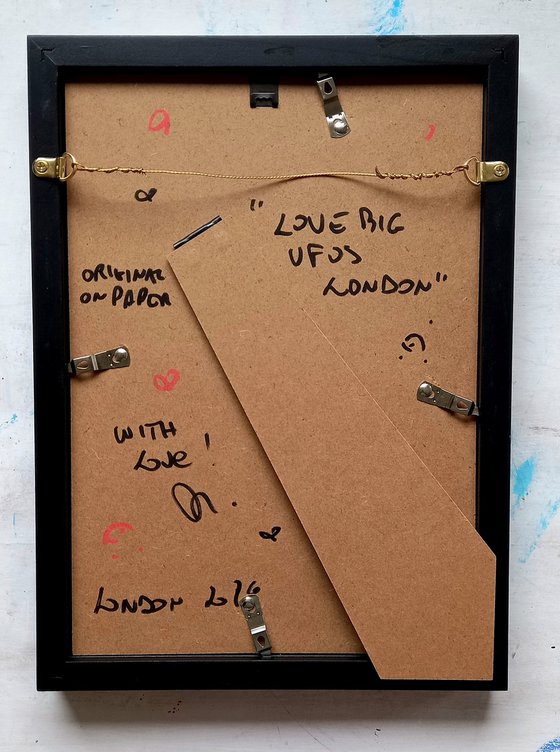 "LOVE BIG
UFOS
LONDON"
ORIGINAL
ON PAPER
WITH
LOVE!
LONDON